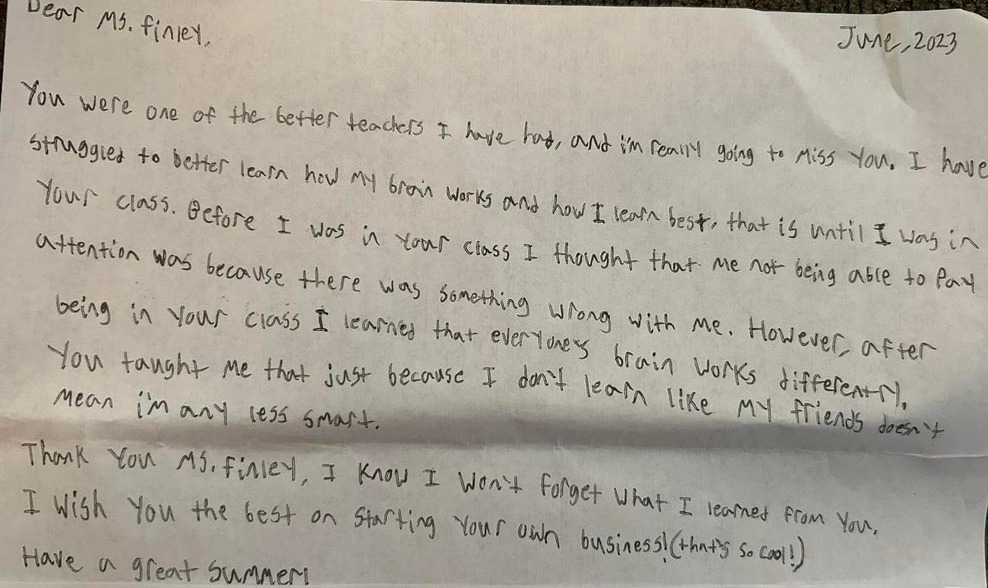 Dear Ms. Finley,
June, 2023
You were one of the better teachers I have had, and i'm really going to miss you. I have
struggled to better learn how my brain works and how I learn best, that is until I was in
your class. Before I was in your class I thought that me not being able to pay
attention was because there was something wrong with me. However, after
being in your class I learned that everyone's brain works differently.
You taught me that just because I don't learn like my friends doesn't
mean i'm any less smart.
Thank you Ms. Finley, I know I won't forget what I learned from you.
I wish you the best on starting your own business! (that's so cool!)
Have a great summer!